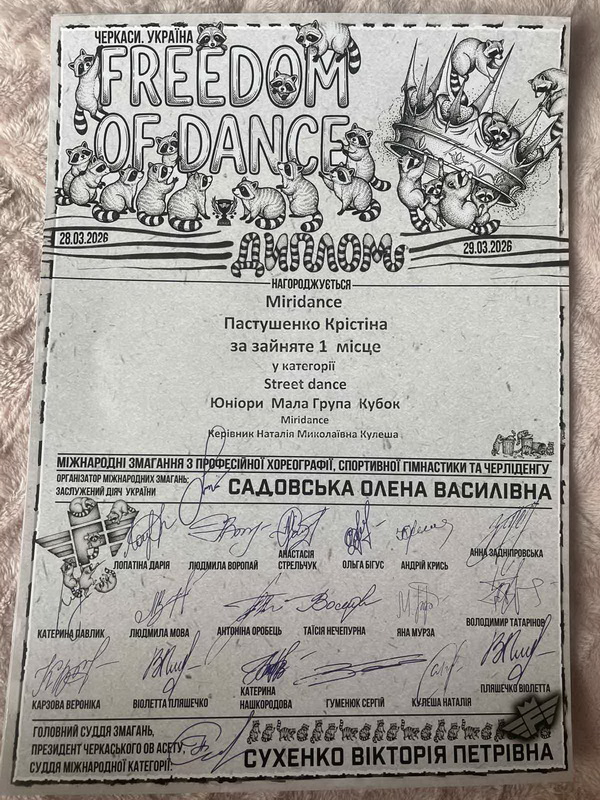 ЧЕРКАСИ. УКРАЇНА
FREEDOM
OF DANCE
28.03.2026
ДИПЛОМ
29.03.2026
НАГОРОДЖУЄТЬСЯ
Miridance
Пастушенко Крістіна
за зайняте 1 місце
у категорії
Street dance
Юніори Мала Група Кубок
Miridance
Керівник Наталія Миколаївна Кулеша
МІЖНАРОДНІ ЗМАГАННЯ З ПРОФЕСІЙНОЇ ХОРЕОГРАФІЇ, СПОРТИВНОЇ ГІМНАСТИКИ ТА ЧЕРЛІДЕНГУ
ОРГАНІЗАТОР МІЖНАРОДНИХ ЗМАГАНЬ:
ЗАСЛУЖЕНИЙ ДІЯЧ УКРАЇНИ
САДОВСЬКА ОЛЕНА ВАСИЛІВНА
ЛОПАТІНА ДАРІЯ
ЛЮДМИЛА ВОРОПАЙ
АНАСТАСІЯ
СТРЕЛЬЧУК
ОЛЬГА БІГУС
АНДРІЙ КРИСЬ
АННА ЗАДНІПРОВСЬКА
КАТЕРИНА ПАВЛИК
ЛЮДМИЛА МОВА
АНТОНІНА ОРОБЕЦЬ
ТАЇСІЯ НЕЧЕПУРНА
ЯНА МУРЗА
ВОЛОДИМИР ТАТАРІНОВ
КАРЗОВА ВЕРОНІКА
ВІОЛЕТТА ПЛЯШЕЧКО
КАТЕРИНА
НАШКОРОДОВА
ГУМЕНЮК СЕРГІЙ
КУЛЕША НАТАЛІЯ
ПЛЯШЕЧКО ВІОЛЕТТА
ГОЛОВНИЙ СУДДЯ ЗМАГАНЬ,
ПРЕЗИДЕНТ ЧЕРКАСЬКОГО ОВ АСЕТУ,
СУДДЯ МІЖНАРОДНОЇ КАТЕГОРІЇ:
СУХЕНКО ВІКТОРІЯ ПЕТРІВНА